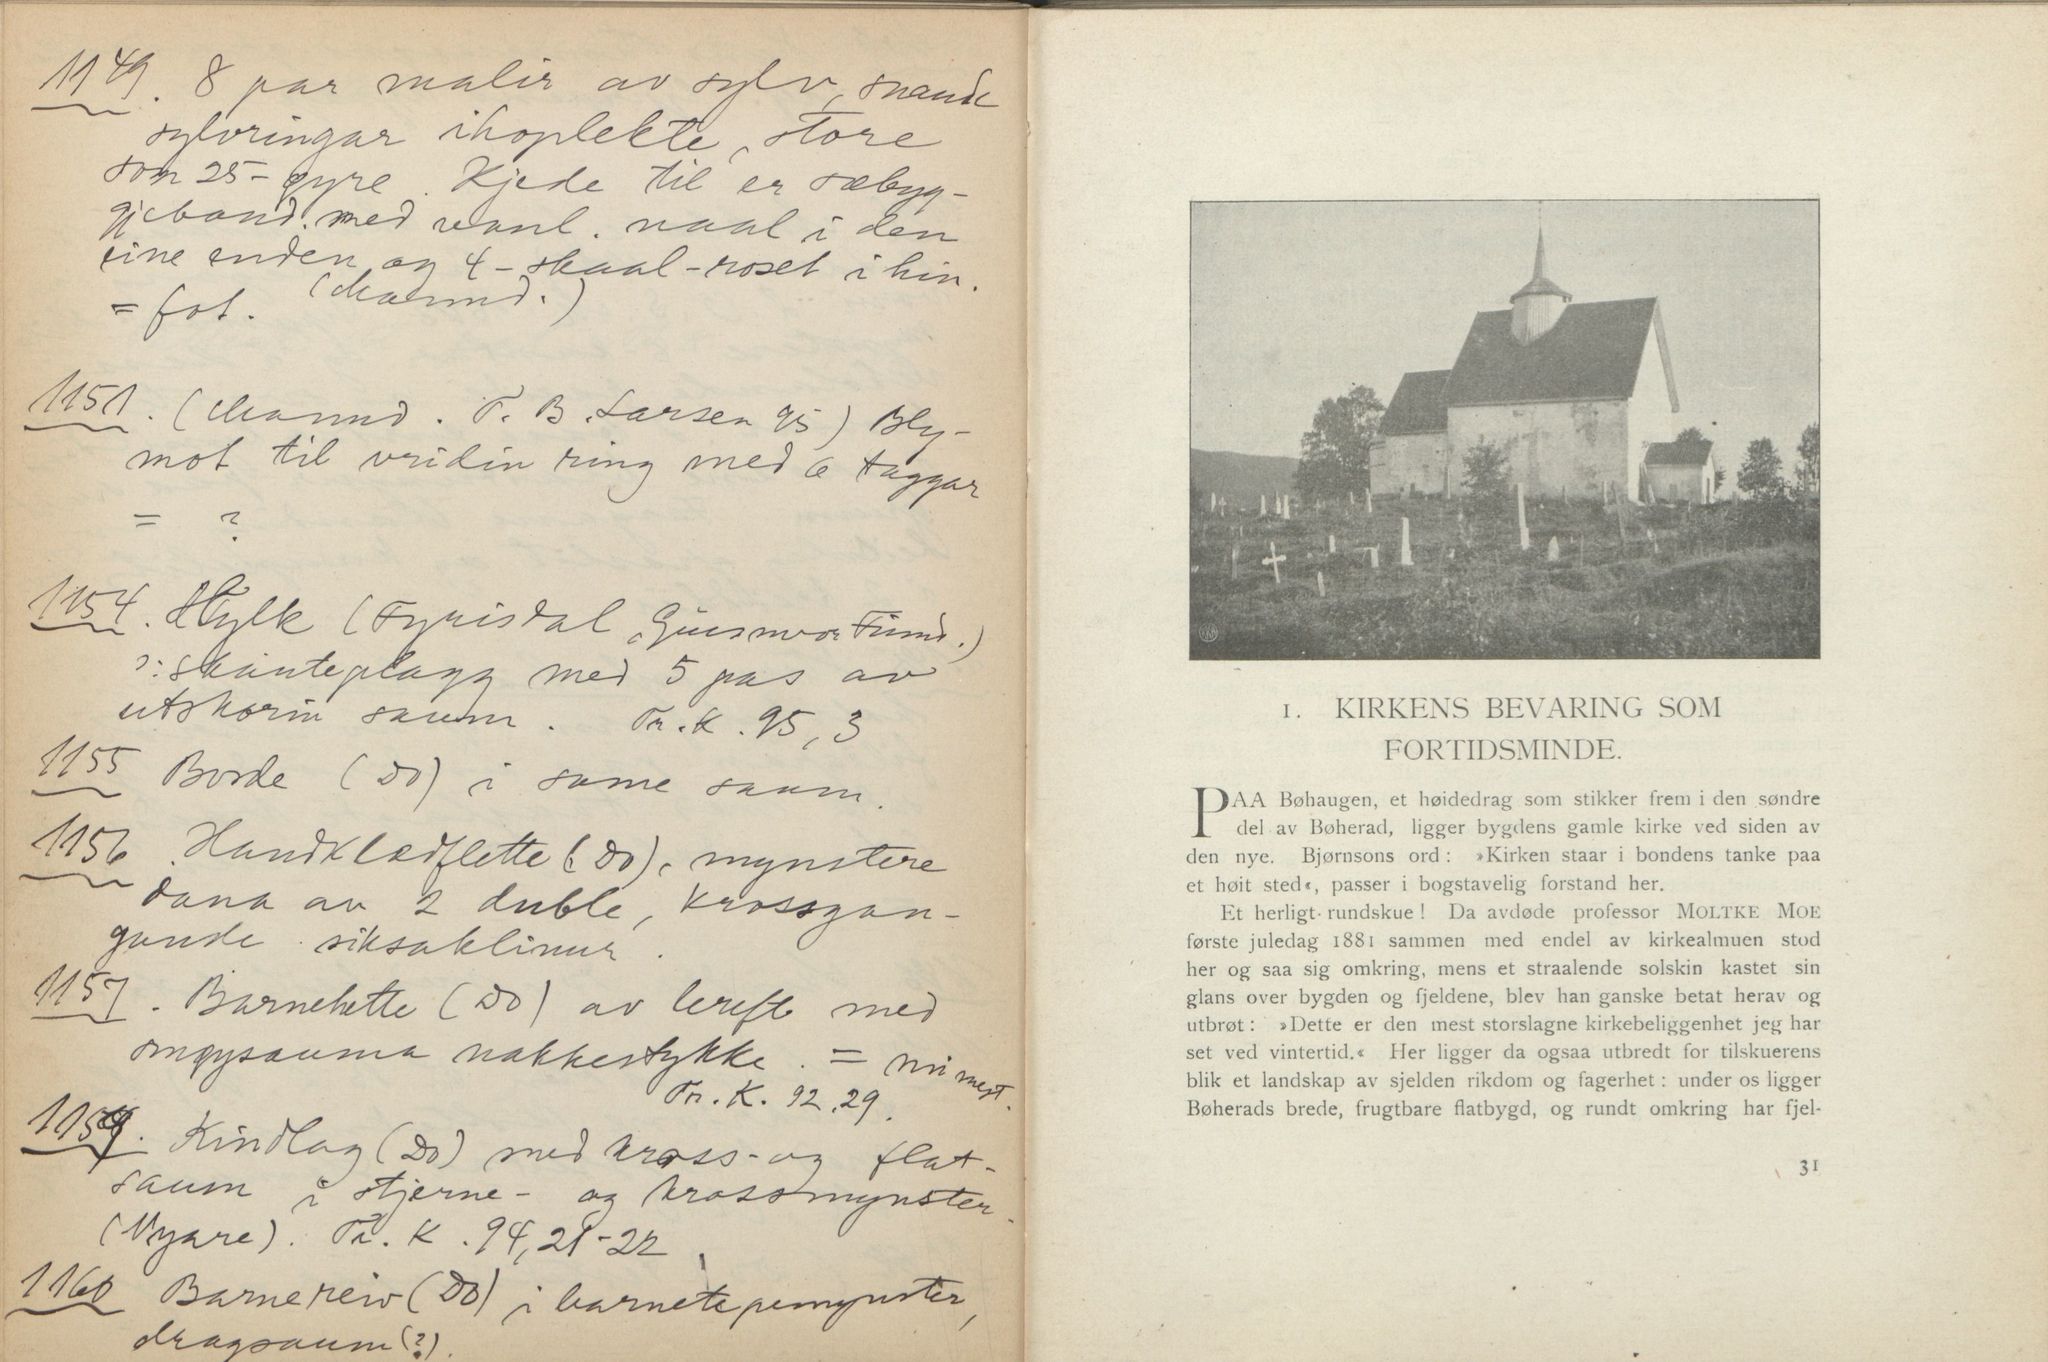 1149. 8 par malir av sylv, smaude
sylvringar ihoplekte, store
som 25-øyre. Kjede til er sæbyg-
gjeband. med vanl. naal i den
eine enden og 4-skaal-roset i hin.
= fot. (Marmd.)
1151. (Marmd. T. B. Larsen 95) Bly-
mot til vridin ring med 6 taggar
= ?
1154. Stylk (Fyrisdal, Gunnvor
ɔ: skauteplagg med 5 pas av
utskorin saum. Tn. K. 95, 3
1155 Borde (Do) i same saum.
1156. Handklædflette (Do), mynstere
dana av 2 duble, krossgan-
gande siksaklinur.
1157. Barnehette (Do) av lereft med
smøysauma nakkestykke. =
Tn. K. 92, 29.
1159. Kindlag (Do) med kross- og flat-
saum i stjerne- og krossmynster
(Nyare). Tn. K. 94, 21-22
1160 Barnereiv (Do) i barnetepemynster,
dragsaum (?).
1. KIRKENS BEVARING SOM
FORTIDSMINDE.
PAA Bøhaugen, et høidedrag som stikker frem i den søndre
del av Bøherad, ligger bygdens gamle kirke ved siden av
den nye. Bjørnsons ord: »Kirken staar i bondens tanke paa
et høit sted«, passer i bogstavelig forstand her.
Et herligt rundskue! Da avdøde professor MOLTKE MOE
første juledag 1881 sammen med endel av kirkealmuen stod
her og saa sig omkring, mens et straalende solskin kastet sin
glans over bygden og fjeldene, blev han ganske betat herav og
utbrøt: »Dette er den mest storslagne kirkebeliggenhet jeg har
set ved vintertid.« Her ligger da ogsaa utbredt for tilskuerens
blik et landskap av sjelden rikdom og fagerhet: under os ligger
Bøherads brede, frugtbare flatbygd, og rundt omkring har fjel-
31